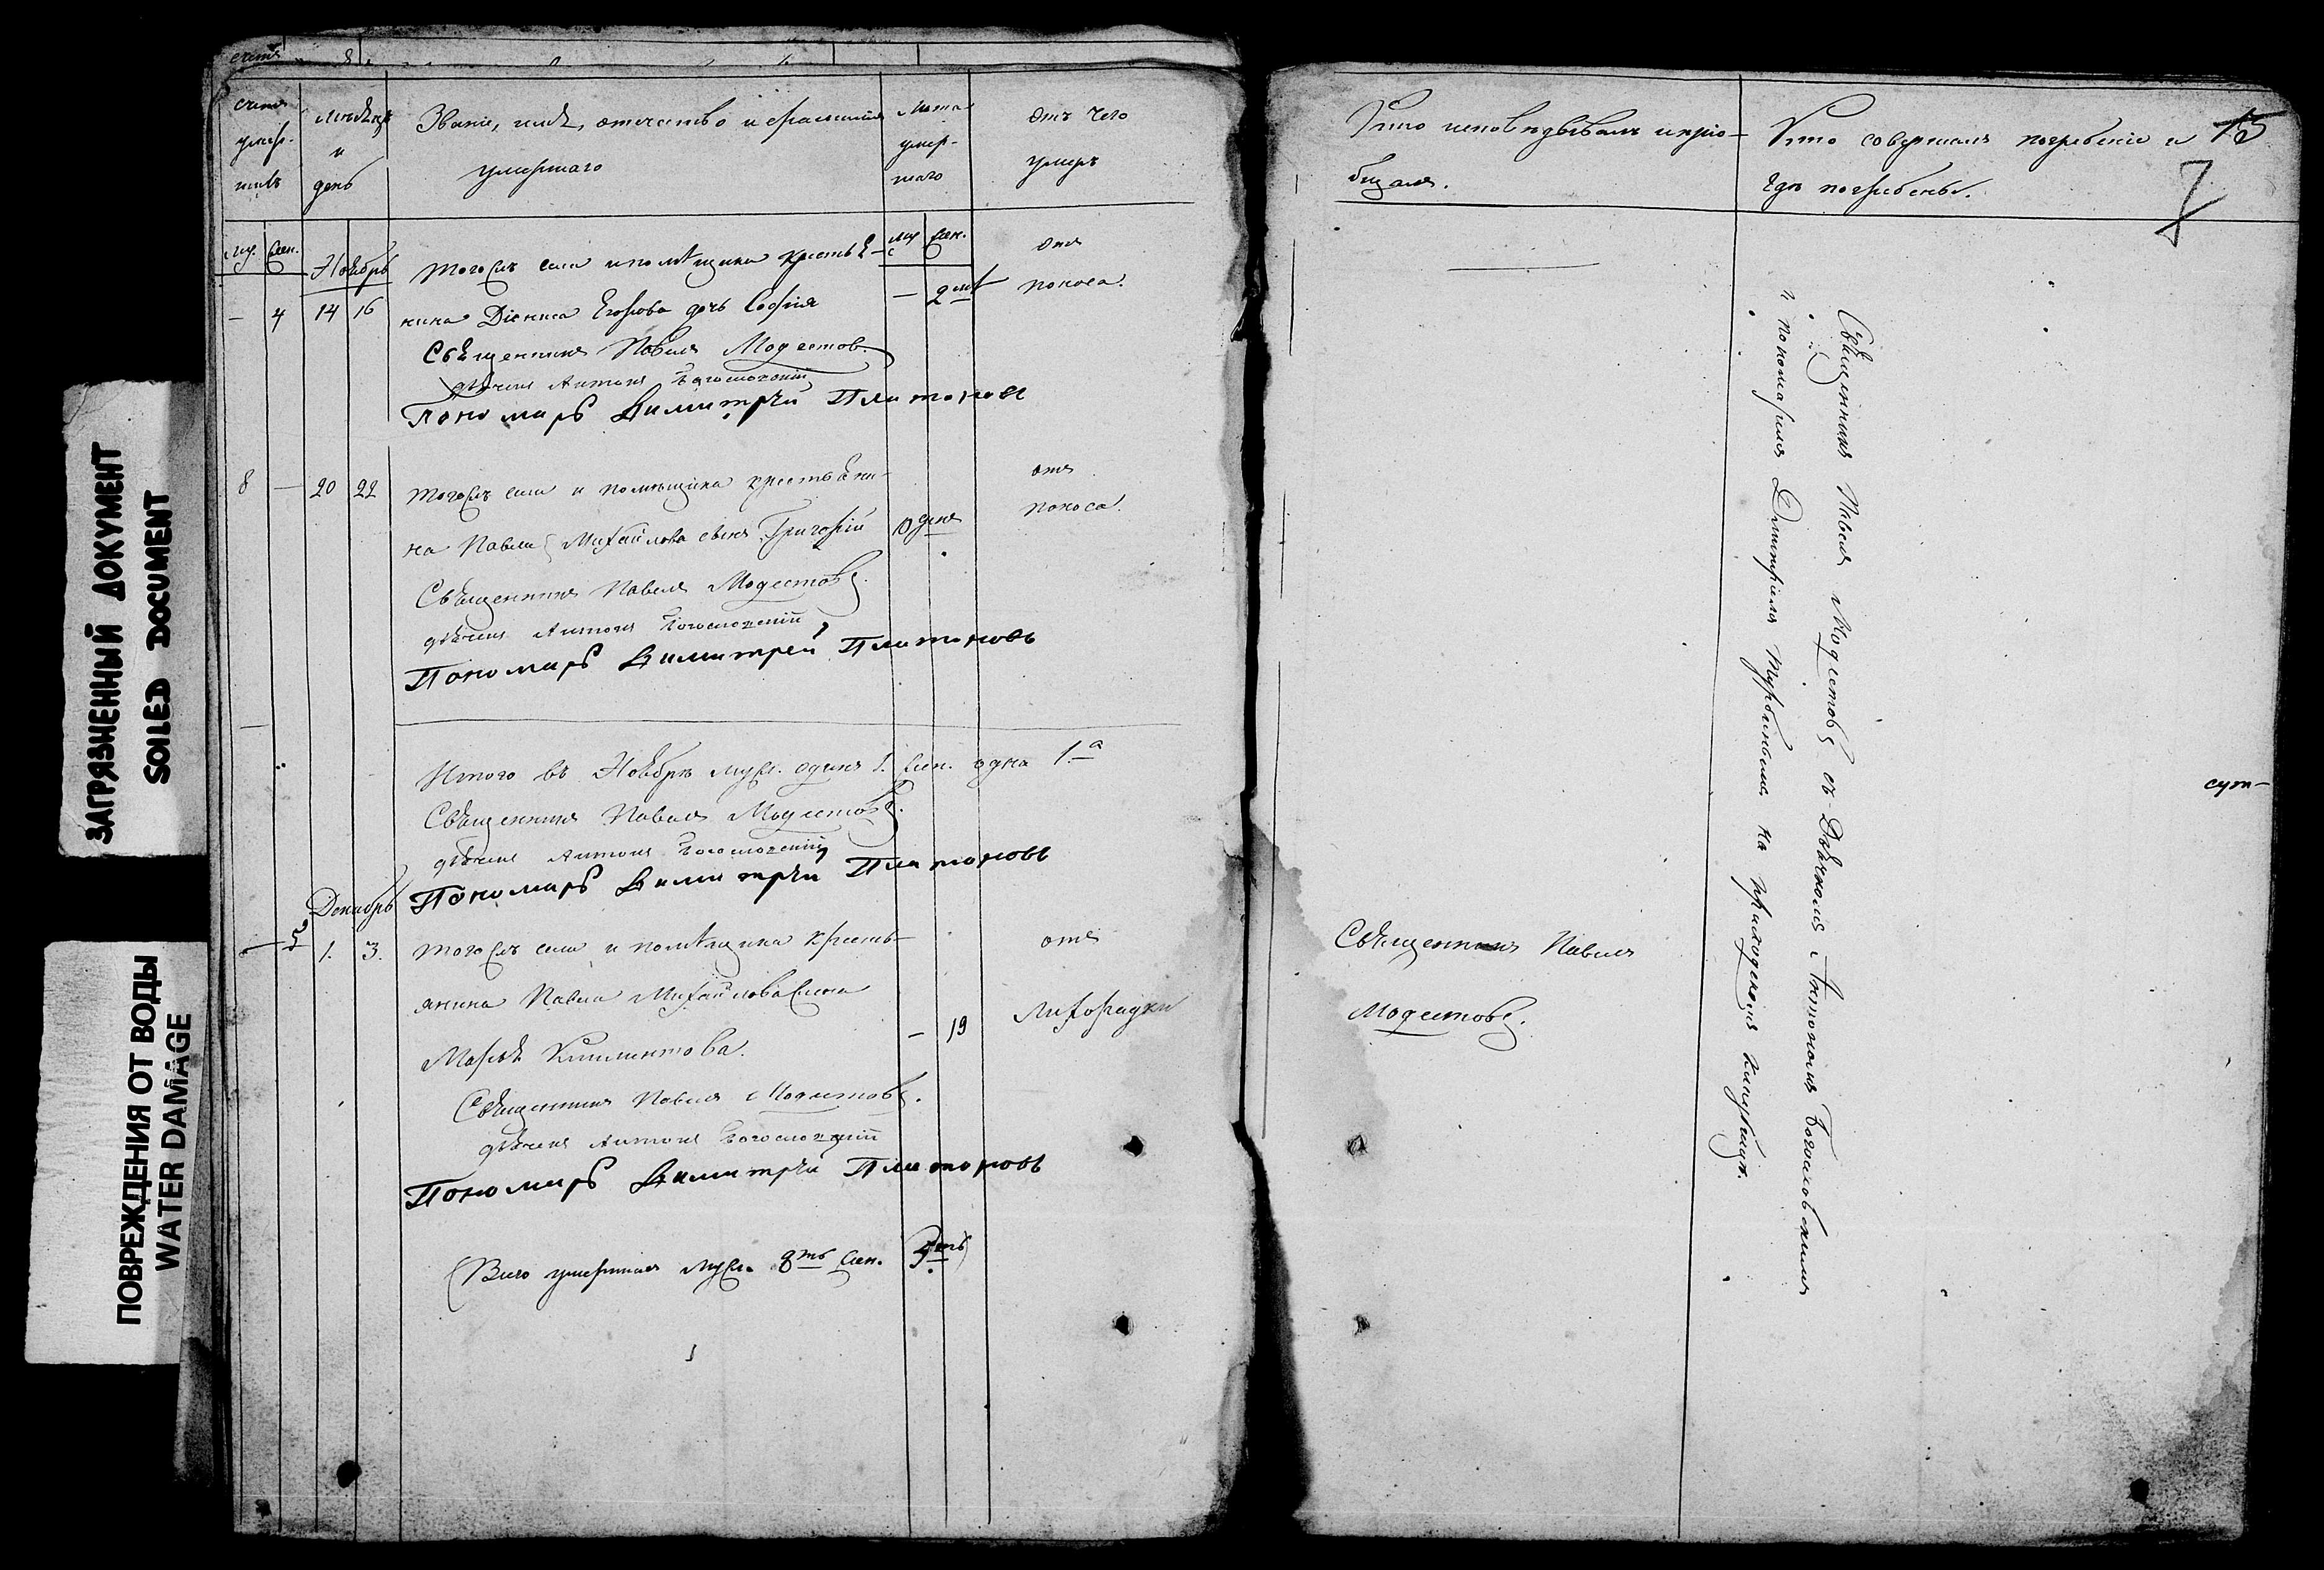 ЗАГРЯЗНЕННЫЙ ДОКУМЕНТ
SOILED DOCUMENT
ПОВРЕЖДЕНИЯ ОТ ВОДЫ
WATER DAMAGE
счетъ
умер-
шихъ
мѣсяцъ
и
день
Званіе, имя, отчество и фамилия
умершаго
Лѣта
умер-
шаго
Отъ чего
умеръ
Муж. Жен.
Ноябрь
Муж Жен.
тогожъ села и помѣщика крестья-
отъ
— 4 14 16
нина Діониса Егорова дочь Софія
— 2
поноса.
Священникъ Павелъ Модестовъ.
дьячекъ Антонъ Богословскій
Пономарь Димитрій Платоновъ
8 — 20 22
тогожъ села и помѣщика крестьяни-
отъ
на Павла Михайлова сынъ Григорій
10 дней
поноса.
Священникъ Павелъ Модестовъ.
дьячекъ Антонъ Богословскій
Пономарь Димитрей Платоновъ
Итого въ Ноябрѣ муж. одинъ 1. жен. одна 1.а
Священникъ Павелъ Модестовъ.
дьячекъ Антонъ Богословскій
Пономарь Димитрій Платоновъ
Декабрь
— 5 1. 3.
тогожъ села и помѣщика кресть-
отъ
янина Павла Михайлова жена
Лихорадки
Марья Климентова.
— 19
Священникъ Павелъ Модестовъ.
дьячекъ Антонъ Богословскій
Пономарь Димитрій Платоновъ
Всего умершихъ муж. 8мь жен. 5ть
Кто исповѣдывалъ и прio-
бщалъ.
Кто совершалъ погребеніе и
гдѣ погребены.
15
7
Священникъ Павелъ Модестовъ съ Дьячкомъ Антономъ Богословскимъ
и пономаремъ Димитріемъ на приходскомъ кладбищѣ.
Священникъ Павелъ
Модестовъ.
сут-